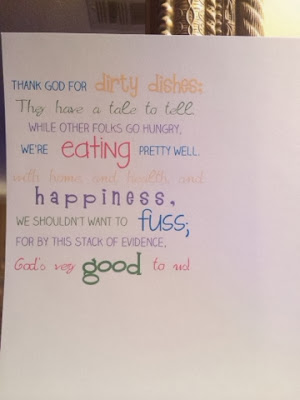 THANK GOD FOR dirty dishes;
They have a tale to tell.
WHILE OTHER FOLKS GO HUNGRY,
WE'RE eating PRETTY WELL.
with home, and health, and
happiness,
WE SHOULDN'T WANT TO fuss;
FOR BY THIS STACK OF EVIDENCE,
God's very good to us!